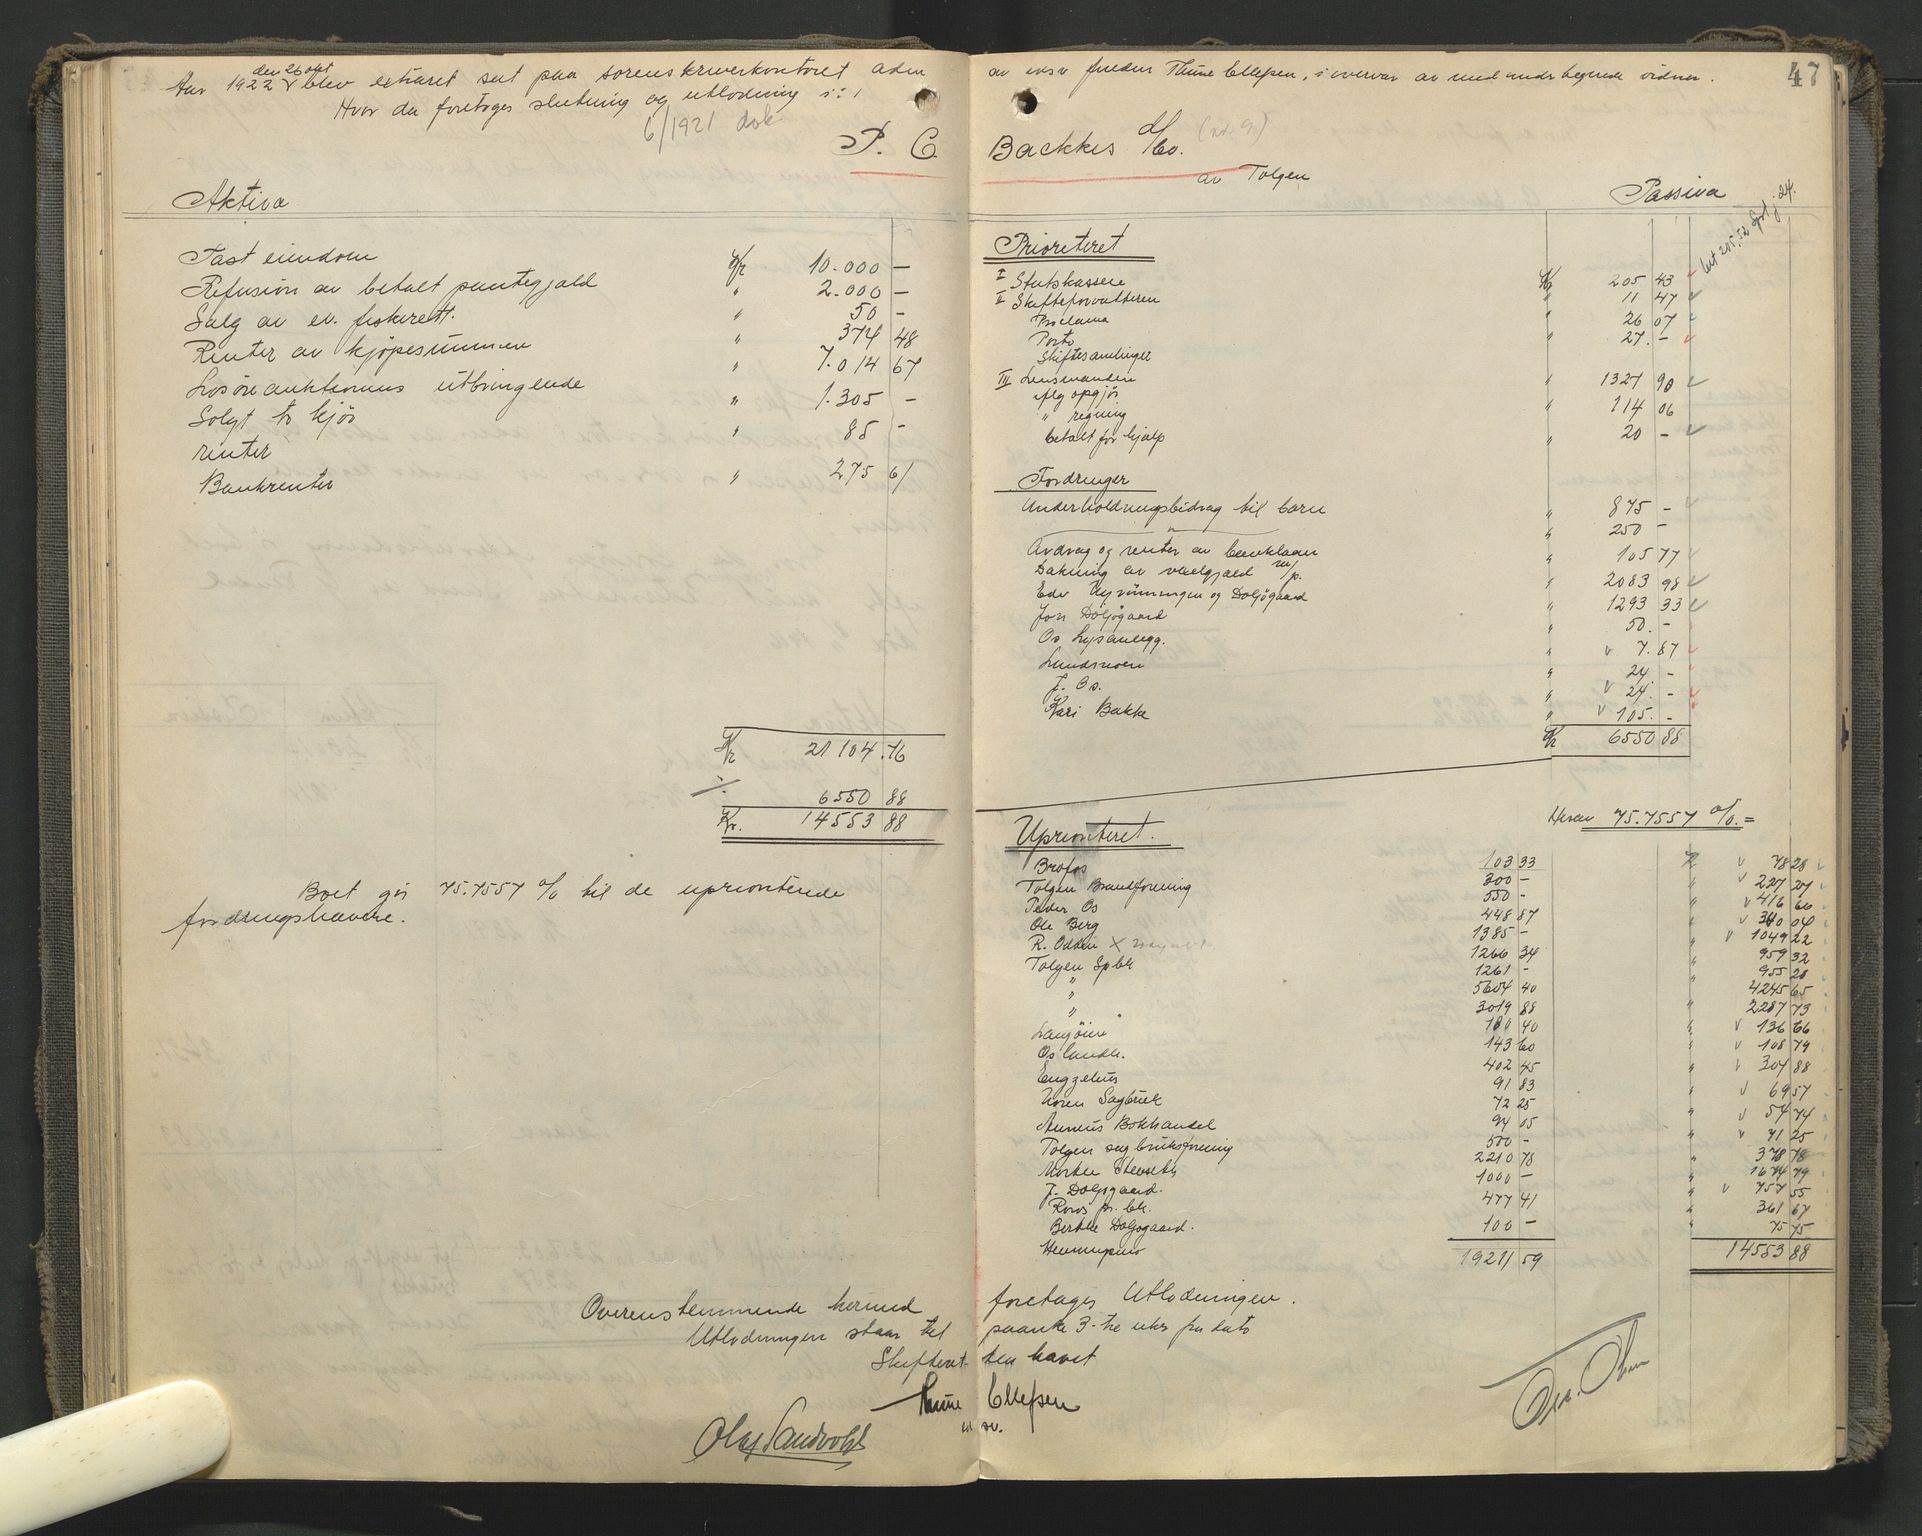 Aar 1922 den 26 okt blev extraret sat paa sorenskriverkontoret adm av edsv fuldm Thune Ellefsen, i overvær av medundertegnede vidner.
47
Hvor da foretoges slutning og utlodning i:
6/1921 dok
P. C. Backkes d/bo. (nr. 9.)
av Tolgen
Aktiva
Fast eiendom Kr 10.000 —
Refusion av betalt pantegjæld " 2.000 —
Salg av ev. fiskerett. " 50 -
Renter av kjøpesummen " 374 48
Løsøreauktionens utbringende " 7.014 67
Solgt to kjør " 1.305 —
renter " 85 -
Bankrenter " 275 61
Kr 21104.76
÷ 6550 88
Kr. 14553 88
Boet gir 75.7557 % til de uprioriterede
fordringshavere.
Passiva
Prioriteret
I Statskassen Kr 205 43
II Skifteforvalteren " 11 47
Proclama 26 07
Porto " 27. -
Skiftesamlinger
III Lensmanden " 1327 90
Afg opgjør " 114 06
" regning
betalt for hjælp " 20 -
Fordringer
Underholdningsbidrag til barn " 875 -
" " 250 -
Avdrag og renter av banklaan " 105 77
Dækning av vexelgjæld " 2083 98
Edv Nyrønningen og Doljøgaard " 1293 33
Jon Doljøgaard " 50. -
Os Lysanlegg. " 7.87
Lundsmoen " 24. -
J. Os. " 24. -
Kari Bakke " 105. -
Kr 6550 88
Uprioriteret.
Herav 75.7557 %. =
Brofos 103 33 Kr 78 28
Tolgen Brandforening 300 - " 227 27
Peder Os 550 - " 416 66
Ole Berg 448 87 " 340 04
R. Odden X 1385 - " 1049 22
Tolgen Spbk 1266 34 " 959 32
" 1261 - " 955 28
" 5604 40 4245 65
" 3019 88 " 2287 73
Langøien 180 40 " 136 66
Os landh. 143 60 " 108 79
Engzelius 402 45 " 304 88
Noren Sagbruk 91 83 " 69 57
Aumus Bokhandel 72 25 " 54 74
Tolgen sagbruksforening 94 05 " 71 25
Morten Stenseth 500 - " 378 78
J. Doljøgaard. 2210 78 " 1674 79
Røros pr. bk. 1000 - " 757 55
Berthe Doljøgaard. 477 41 " 361 67
Hummelmo 100 - " 75 75
19211 59 14553 88
Overensstemmende hermed foretages Utlodningen.
Utlodningen staar til paanke 3-tre uker fra dato
Skifteretten hævet
Thune Ellefsen
ed sv.
Olaf Sandvold